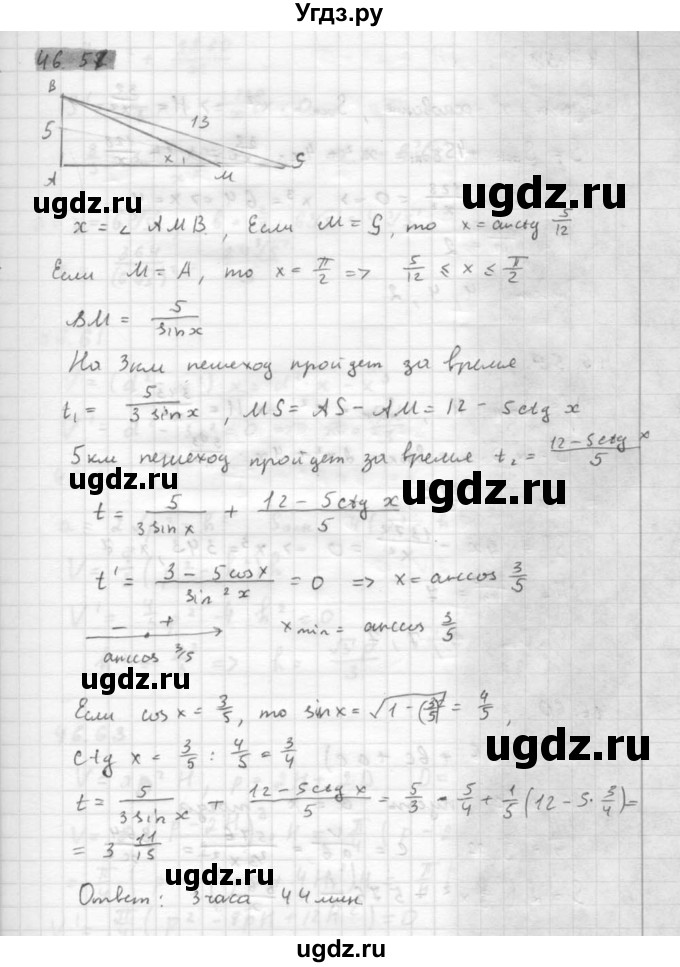 Угдз.ру
46.57
B
5
13
x
A
M
S
ugdz.ru
ugdz.ru
x = ∠ AMB, Если M = S, то x = arcctg 5/12
Если M = A, то x = π/2 => 5/12 ≤ x ≤ π/2
BM = 5/sin x
На 3км пешеход пройдет за время
t₁ = 5/(3 sin x), MS = AS - AM = 12 - 5ctg x
ugdz.ru
5км пешеход пройдет за время t₂ = (12 - 5ctg x)/5
ugdz.ru
t = 5/(3 sin x) + (12 - 5ctg x)/5
t' = (3 - 5cos x)/sin² x = 0 => x = arccos 3/5
- + x min = arccos 3/5
arccos 3/5
ugdz.ru
Если cos x = 3/5, то sin x = √(1 - (3/5)²) = 4/5,
ugdz.ru
ctg x = 3/5 : 4/5 = 3/4
t = 5/(3 sin x) + (12 - 5ctg x)/5 = 5/3 · 5/4 + 1/5 (12 - 5 · 3/4) =
= 3 11/15
ugdz.ru
ugdz.ru
Ответ: 3 часа 44 мин
ugdz.ru